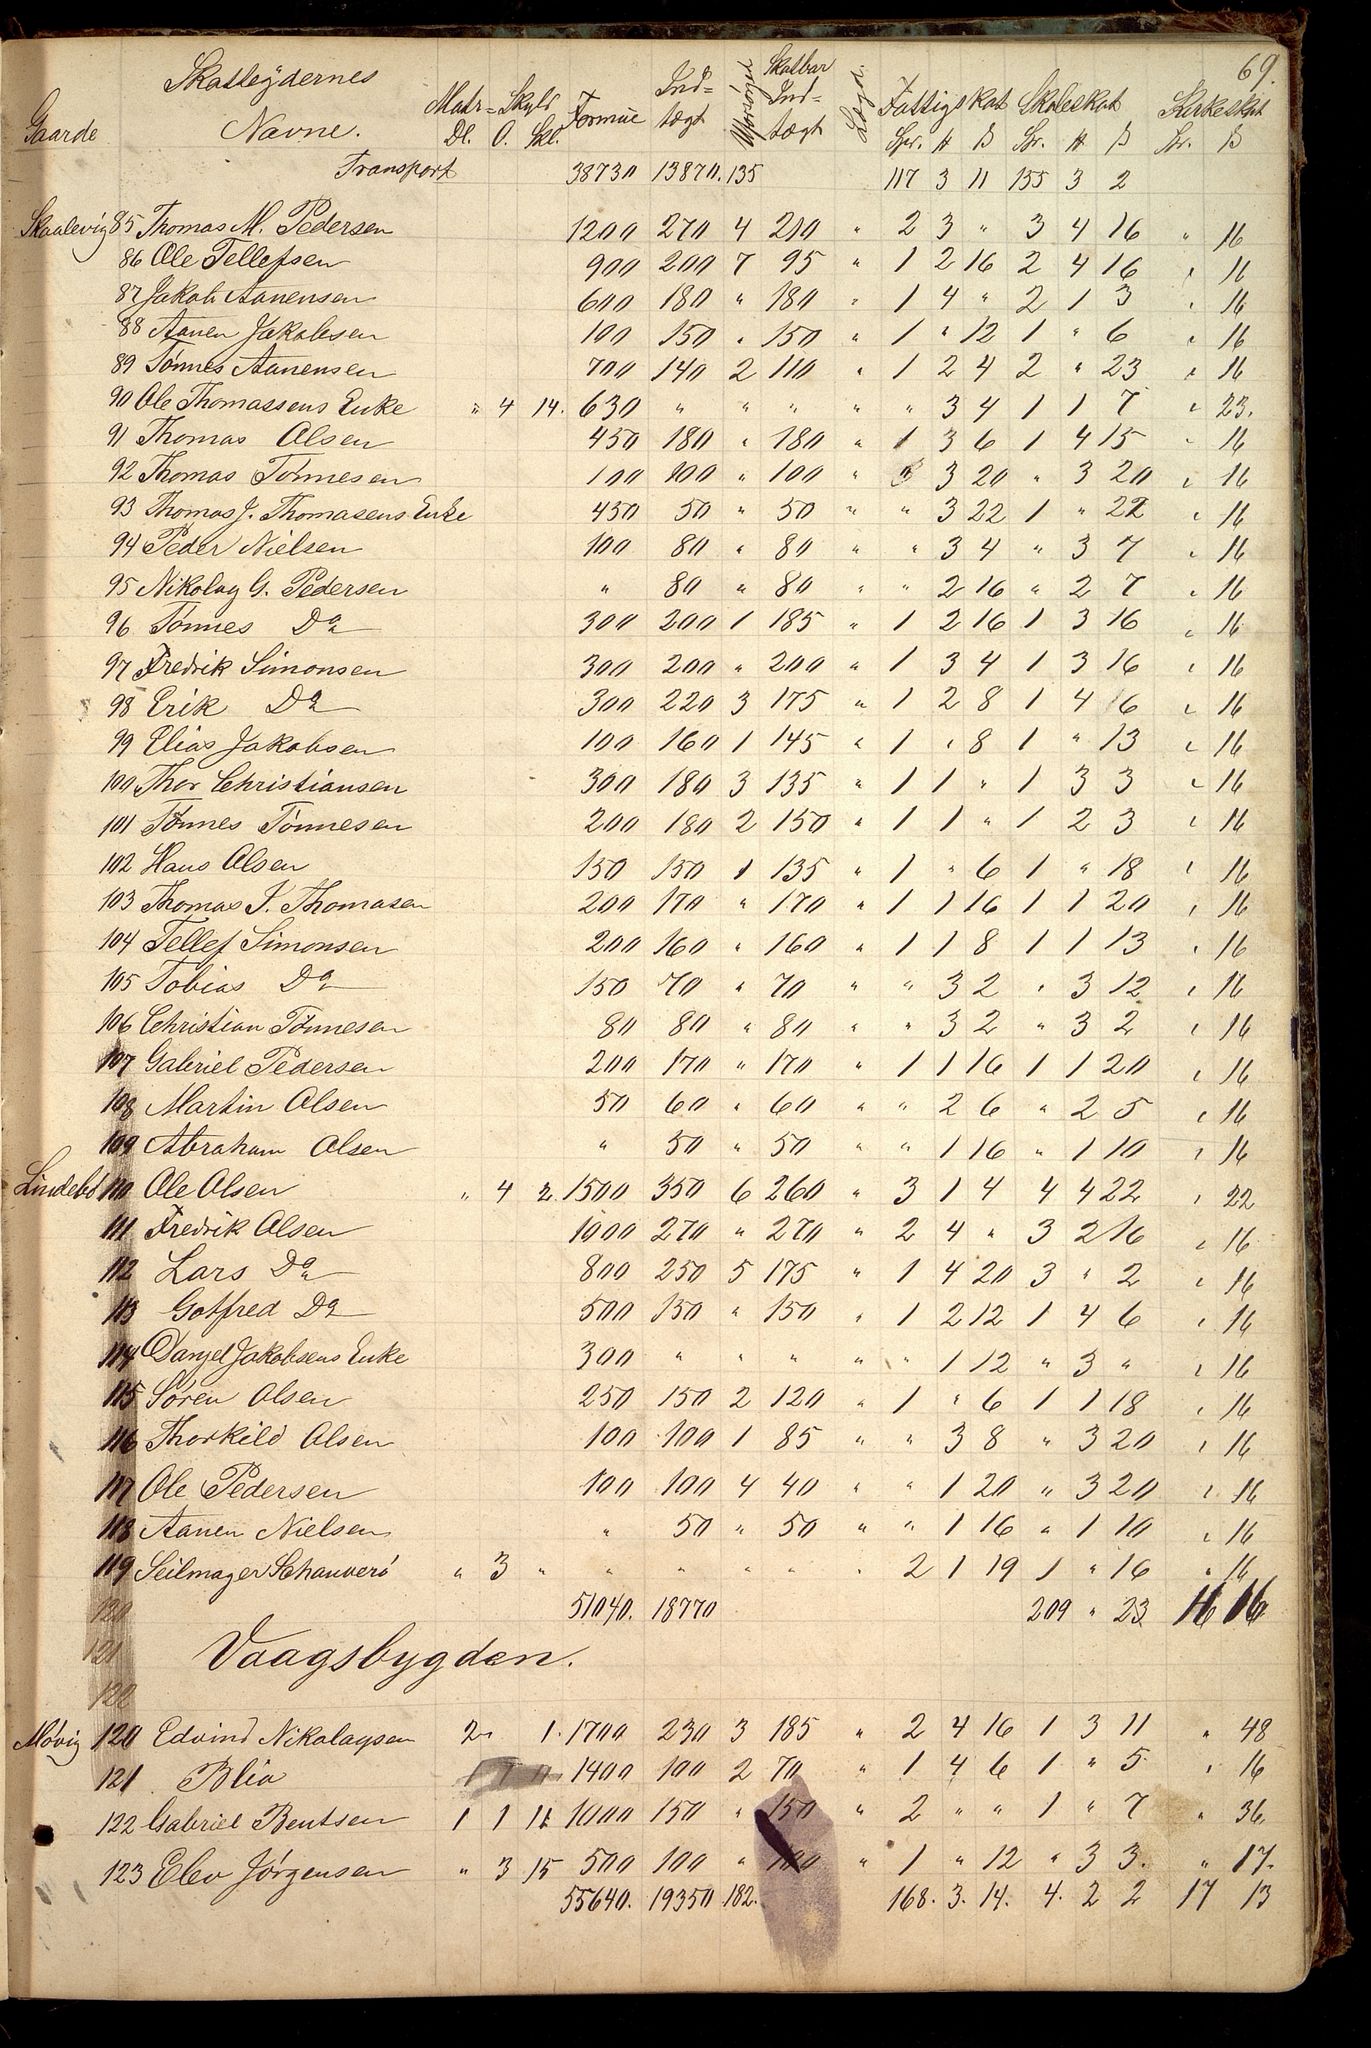 69.
Gaarde Skatteydernes Navne. Matr= Skyld Dl. O. Skl. Formue Ind= tægt Skatbar Ind= tægt Fattigskat Spr. # ß Skoleskat Spr. # ß Kirkeskat Spr. ß
Transport 38730 13870. 135 117 3 11 155 3 2
Skaalevig 85 Thomas M. Pedersen 1200 270 4 210 " 2 3 " 3 4 16 " 16
86 Ole Tellefsen 900 200 7 95 " 1 2 16 2 4 16 " 16
87 Jakob Aanensen 600 180 " 180 " 1 4 " 2 1 3 " 16
88 Aanen Jakobsen 100 150 " 150 " 1 " 12 1 " 6 " 16
89 Tønnes Aanensen 700 140 2 110 " 1 2 4 2 " 23 " 16
90 Ole Thomassens Enke " 4 14. 630 " " " " " 3 4 1 1 7 " 23.
91 Thomas Olsen 450 180 " 180 " 1 3 6 1 4 15 " 16
92 Thomas Tønnesen 100 100 " 100 " " 3 20 " 3 20 " 16
93 Thomas J. Thomasens Enke 450 50 " 50 " " 3 22 1 " 22 " 16
94 Peder Nielsen 100 80 " 80 " " 3 4 " 3 7 " 16
95 Nikolay G. Pedersen " 80 " 80 " " 2 16 " 2 7 " 16
96 Tønnes Do 300 200 1 185 " 1 2 16 1 3 16 " 16
97 Fredrik Simonsen 300 200 " 200 " 1 3 4 1 3 16 " 16
98 Erik Do 300 220 3 175 " 1 2 8 1 4 16 " 16
99 Elias Jakobsen 100 160 1 145 " 1 " 8 1 " 13 " 16
100 Thor Christiansen 300 180 3 135 " 1 1 " 1 3 3 " 16
101 Tønnes Tønnesen 200 180 2 150 " 1 1 " 1 2 3 " 16
102 Hans Olsen 150 150 1 135 " 1 " 6 1 " 18 " 16
103 Thomas T. Thomasen 200 170 " 170 " 1 1 16 1 1 20 " 16
104 Tellef Simonsen 200 160 " 160 " 1 1 8 1 1 13 " 16
105 Tobias Do 150 70 " 70 " " 3 2 " 3 12 " 16
106 Christian Tønnesen 80 80 " 80 " " 3 2 " 3 2 " 16
107 Gabriel Pedersen 200 170 " 170 " 1 1 16 1 1 20 " 16
108 Martin Olsen 50 60 " 60 " " 2 6 " 2 5 " 16
109 Abraham Olsen " 50 " 50 " " 1 16 " 1 10 " 16
Lindebø 110 Ole Olsen " 4 2. 1500 350 6 260 " 3 1 4 4 4 22 " 22
111 Fredrik Olsen 1000 270 " 270 " 2 4 " 3 2 16 " 16
112 Lars Do 800 250 5 175 " 1 4 20 3 " 2 " 16
113 Gotfred Do 500 150 " 150 " 1 2 12 1 4 6 " 16
114 Danjel Jakobsens Enke 300 " " " " " 1 12 " 3 " " 16
115 Søren Olsen 250 150 2 120 " 1 " 6 1 1 18 " 16
116 Thorkild Olsen 100 100 1 85 " " 3 8 " 3 20 " 16
117 Ole Pedersen 100 100 4 40 " " 1 20 " 3 20 " 16
118 Aanen Nielsen " 50 " 50 " " 1 16 " 1 10 " 16
119 Seilmager Schauverø " 3 " " " " " " 2 1 19 1 " 16 " 16
120 51040. 18770 209 " 23 16 16
121 Vaagsbygden.
122
Møvig 120 Edvind Nikolaysen 2 " 1. 1700 230 3 185 " 2 4 16 1 3 11 " 48
121 Blia 1400 100 2 70 " 1 4 6 1 " 5 " 16
122 Gabriel Bentsen 1 1 11 1000 150 " 150 " 2 " " 1 " 7 " 36.
123 Elev Jørgensen " 3 15 500 100 " 100 " 1 " 12 " 3 3. " 17.
55640. 19350 182. 168. 3. 14. 4. 2 2 17 13